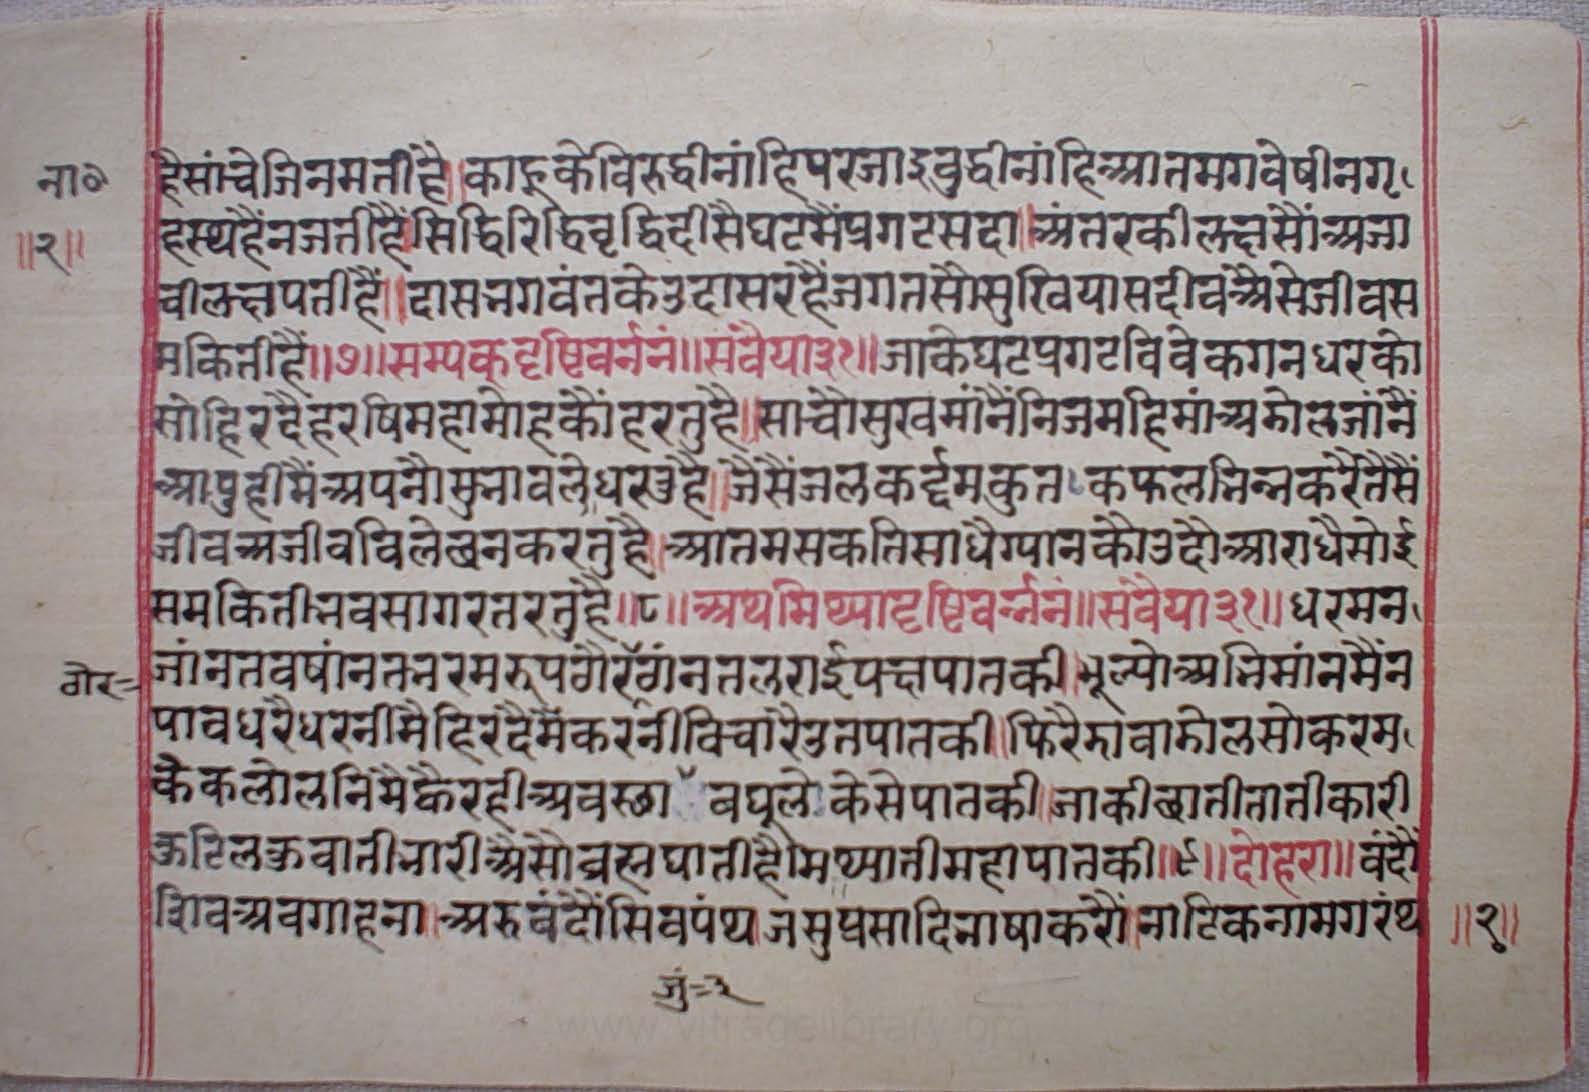 ना०
॥२॥
हैसांचेजिनमतीहै।काहूकेविरुद्धीनांहिपरजाइबुद्धीनांहिआतमगवेषीनगृ
हस्थहैंनजतीहैं।सिद्धिरिद्धिवृद्धिदीसैघटमैंप्रगटसदा।अंतरकीलछसौंअजा
चीलछपतीहैं॥दासभगवंतकेउदासरहैंजगतसौंसुखियासदीवअैसेजीवस
मकितीहैं॥७॥सम्यकदृष्टिवर्ननं॥सवैया३१॥जाकेघटप्रगटविवेकगनधरको
सोहिरदैहरषिमहामोहकौंहरतुहै॥साचौसुखमांनैंनिजमहिमांअमोलजांनैं
आपुहीमैंअपनौसुभावलेधरउहै॥जैसैंजलकर्द्दमकुतकफलभिन्नकरैतैसैं
जीवअजीवविलेछनकरतुहै।आतमसकतिसाधैग्यानकौउदौआराधैसोई
समकितीभवसागरतरतुहै॥८॥अथमिथ्यादृष्टिवर्न्ननं॥सवैया३१॥धरमन
जांनतवषांनतभरमरूपगैरगंनतलराईपछपातकी।भूल्योअभिमांनमैंन
ठोर=
पावधरैधरनीमैहिरदैमैंकरनीविचारैउतपातकी॥फिरैमांवामोलसोकरम
कैकलोलनिमैकैरहीअवस्छावघूलेकेसेपातकी।जाकीछातीतातीकारी
कुटिलकुवातीभारीअैसौब्रह्मघातीहैमिथ्यातीमहापातकी॥९॥दोहरा॥वंदौं
शिवअवगाहना।अरुवंदौंसिवपंथ।जसुप्रसादिभाषाकरौं।नाटिकनामगरंथ
॥२॥
www.vitragelibrary.org